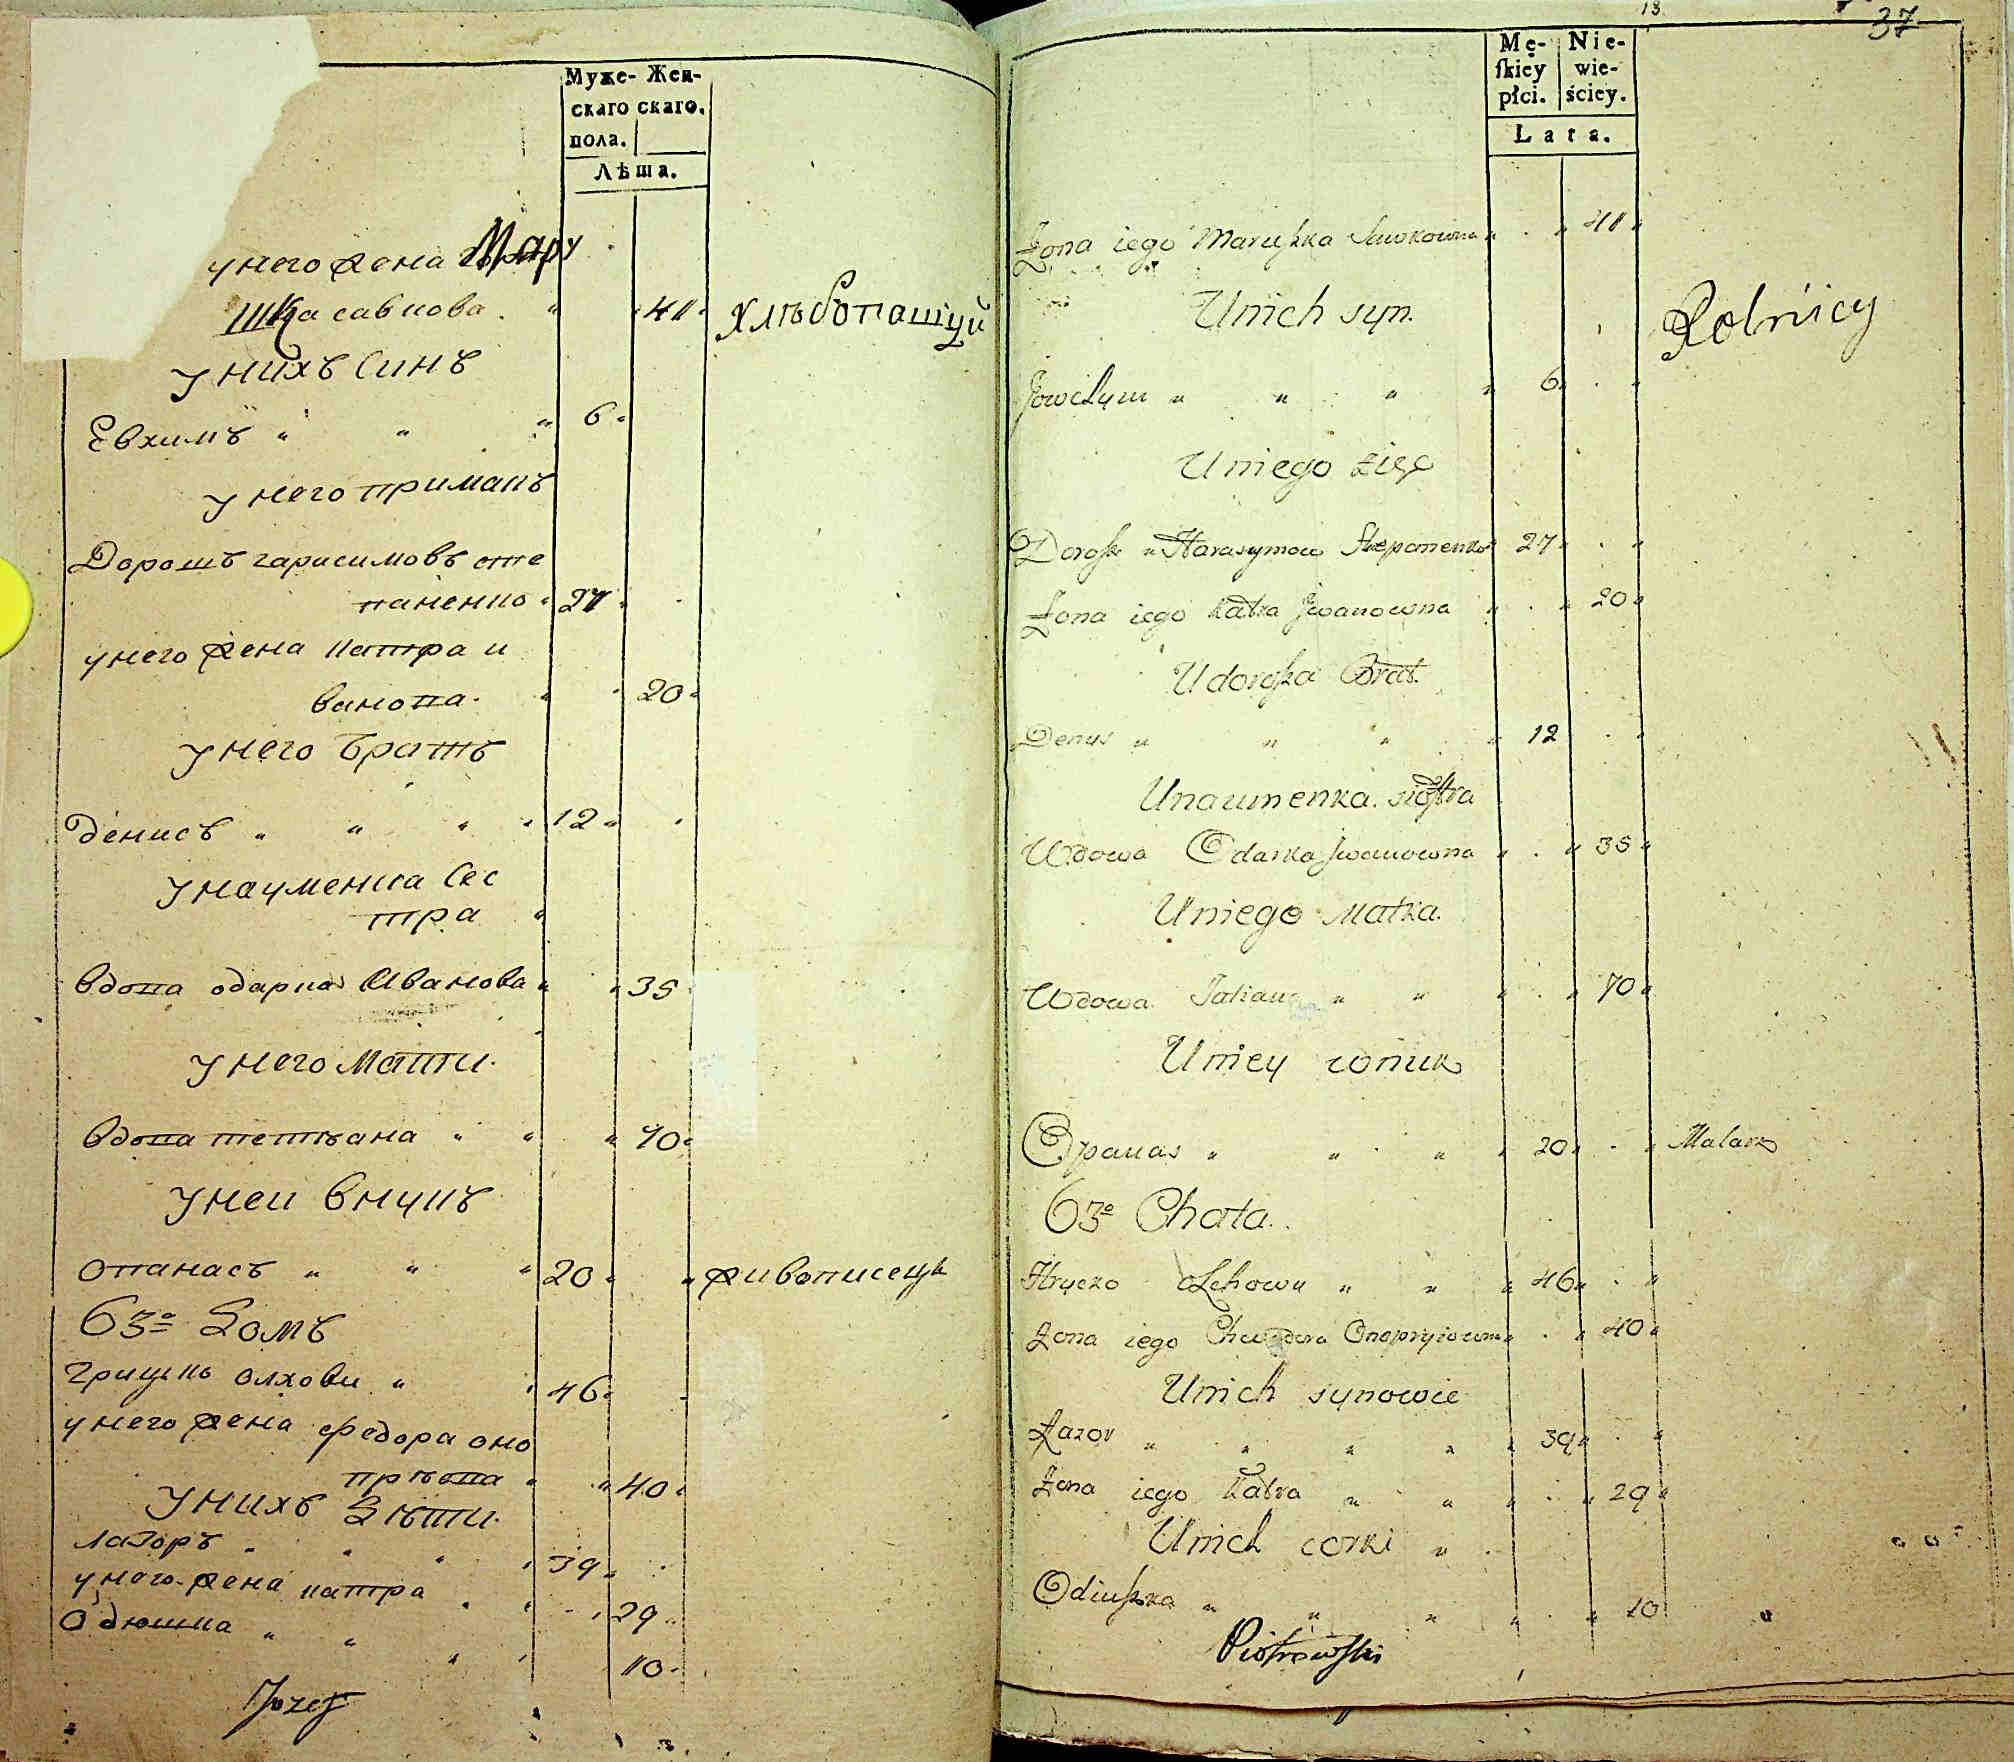 Муже- Жен-
скаго скаго.
пола.
Лѣта.
у него жена Мару
шка савкова " 41 " Хлѣбопашцы
у нихъ Синъ
Евхимъ " " " 6 "
у него примакъ
Дорошъ гарасимовъ сте
паненко " 27 "
у него жена катра и
ванова " 20 "
у него братъ
Денисъ " " " " 12 "
у науменка Сес
тра "
вдова одарка Иванова " " 35
у него мати.
вдова тетяна " " " 70 "
у неи внукъ
опанасъ " " " 20 " " живописецъ
63º Домъ
грицко олхови " " 46 "
у него жена федора оно
пріева " " 40 "
у нихъ Дѣти.
лазоръ " " " " 39 "
у него жена катра " " " 29 "
одюшка " " " " 10 "
Jozef
13
37
Mę- Nie-
ſkiey wie-
płci. ściey.
Lata.
Żona iego Maruszka Sawkowna " . " 41 "
Unich syn. Rolnicy
Jowchym " " " " 6 " . "
Uniego zięć
Dorosz " Harasymow Stepanenko " 27 " . "
Żona iego Katra Jwanowna " . " 20 "
Udoroszka Brat.
Denys " " " " 12 . "
Unaumenka siostra
Wdowa Odarka Jwanowna " . " 35 "
Uniego Matka.
Wdowa Tatiana " " " . " 70 "
Uniey wnuk
Opanas " " " " 20 " . " Malarz
63º Chata.
Hrycko Olchowy " " " 46 " . "
Żona iego Chwedora Onopryiowna " . " 40 "
Unich synowie
Łazor " " " " " 39 " . "
Żona iego Katra " " " . " 29 "
Unich corki "
Odiuszka " " " " . " 10 "
Piotrowski